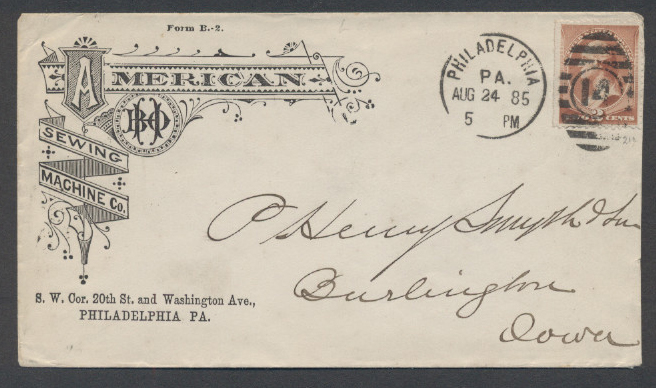 Form B.-2.
AMERICAN
SEWING
MACHINE Co.
S. W. Cor. 20th St. and Washington Ave.,
PHILADELPHIA PA.
PHILADELPHIA
PA.
AUG 24 85
5 PM
14
CENTS
P Henry Smyth & Son
Burlington
Iowa